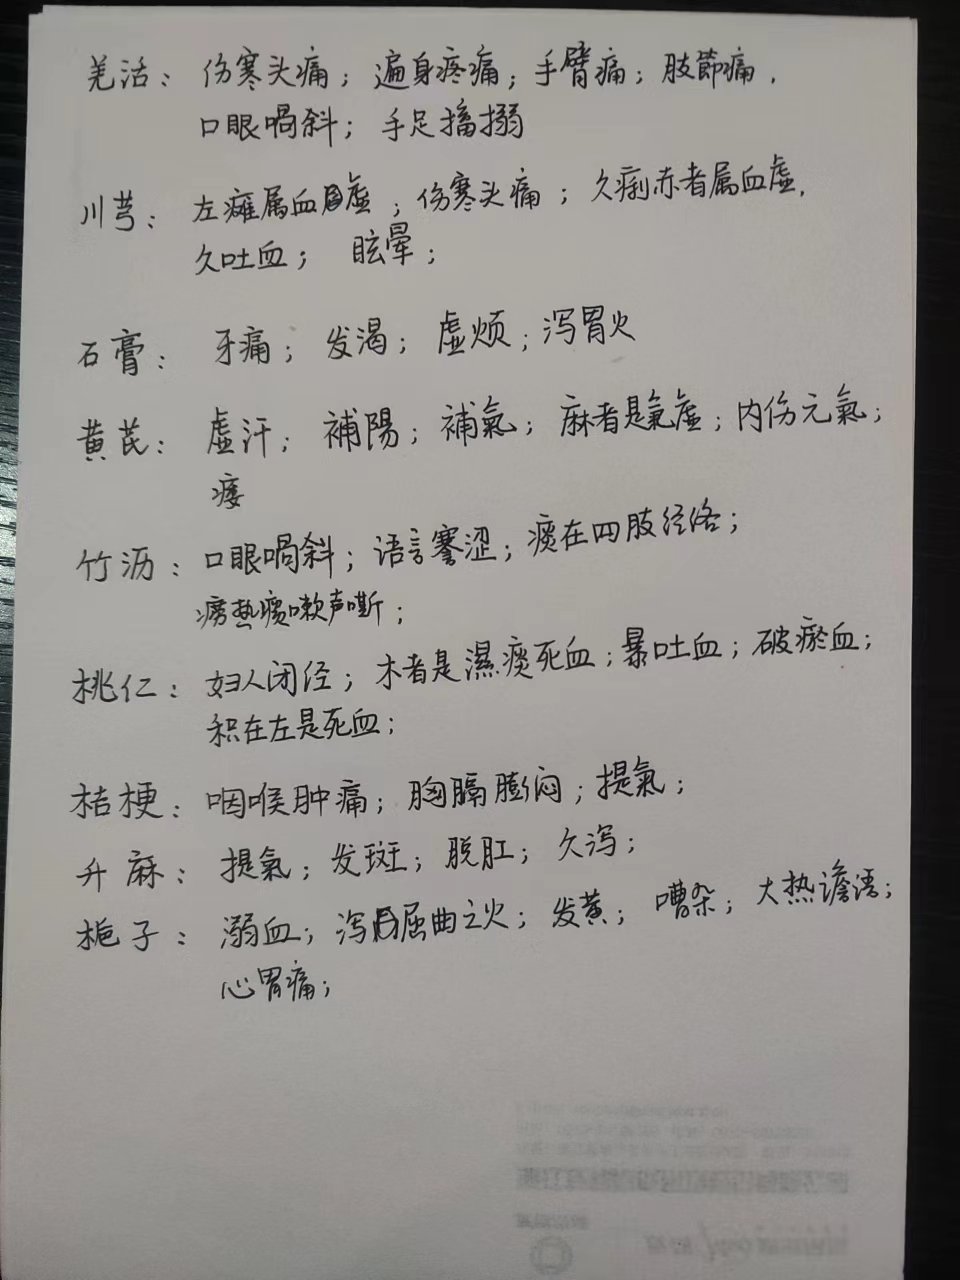 羌活：伤寒头痛；遍身疼痛；手臂痛；肢節痛，
口眼喎斜；手足搐搦
川芎：左瘫属血虚；伤寒头痛；久痢赤者属血虚，
久吐血；眩晕；
石膏：牙痛；发渴；虚烦；泻胃火
黄芪：虚汗；補陽；補氣；麻者是氣虚；内伤元氣；
痿
竹沥：口眼喎斜；语言蹇涩；痰在四肢经络；
痨热痰嗽声嘶；
桃仁：妇人闭经；木者是濕痰死血；暴吐血；破瘀血；
积在左是死血；
桔梗：咽喉肿痛；胸膈膨闷；提氣；
升麻：提氣；发斑；脱肛；久泻；
栀子：溺血；泻屈曲之火；发黄；嘈杂；大热谵语；
心胃痛；